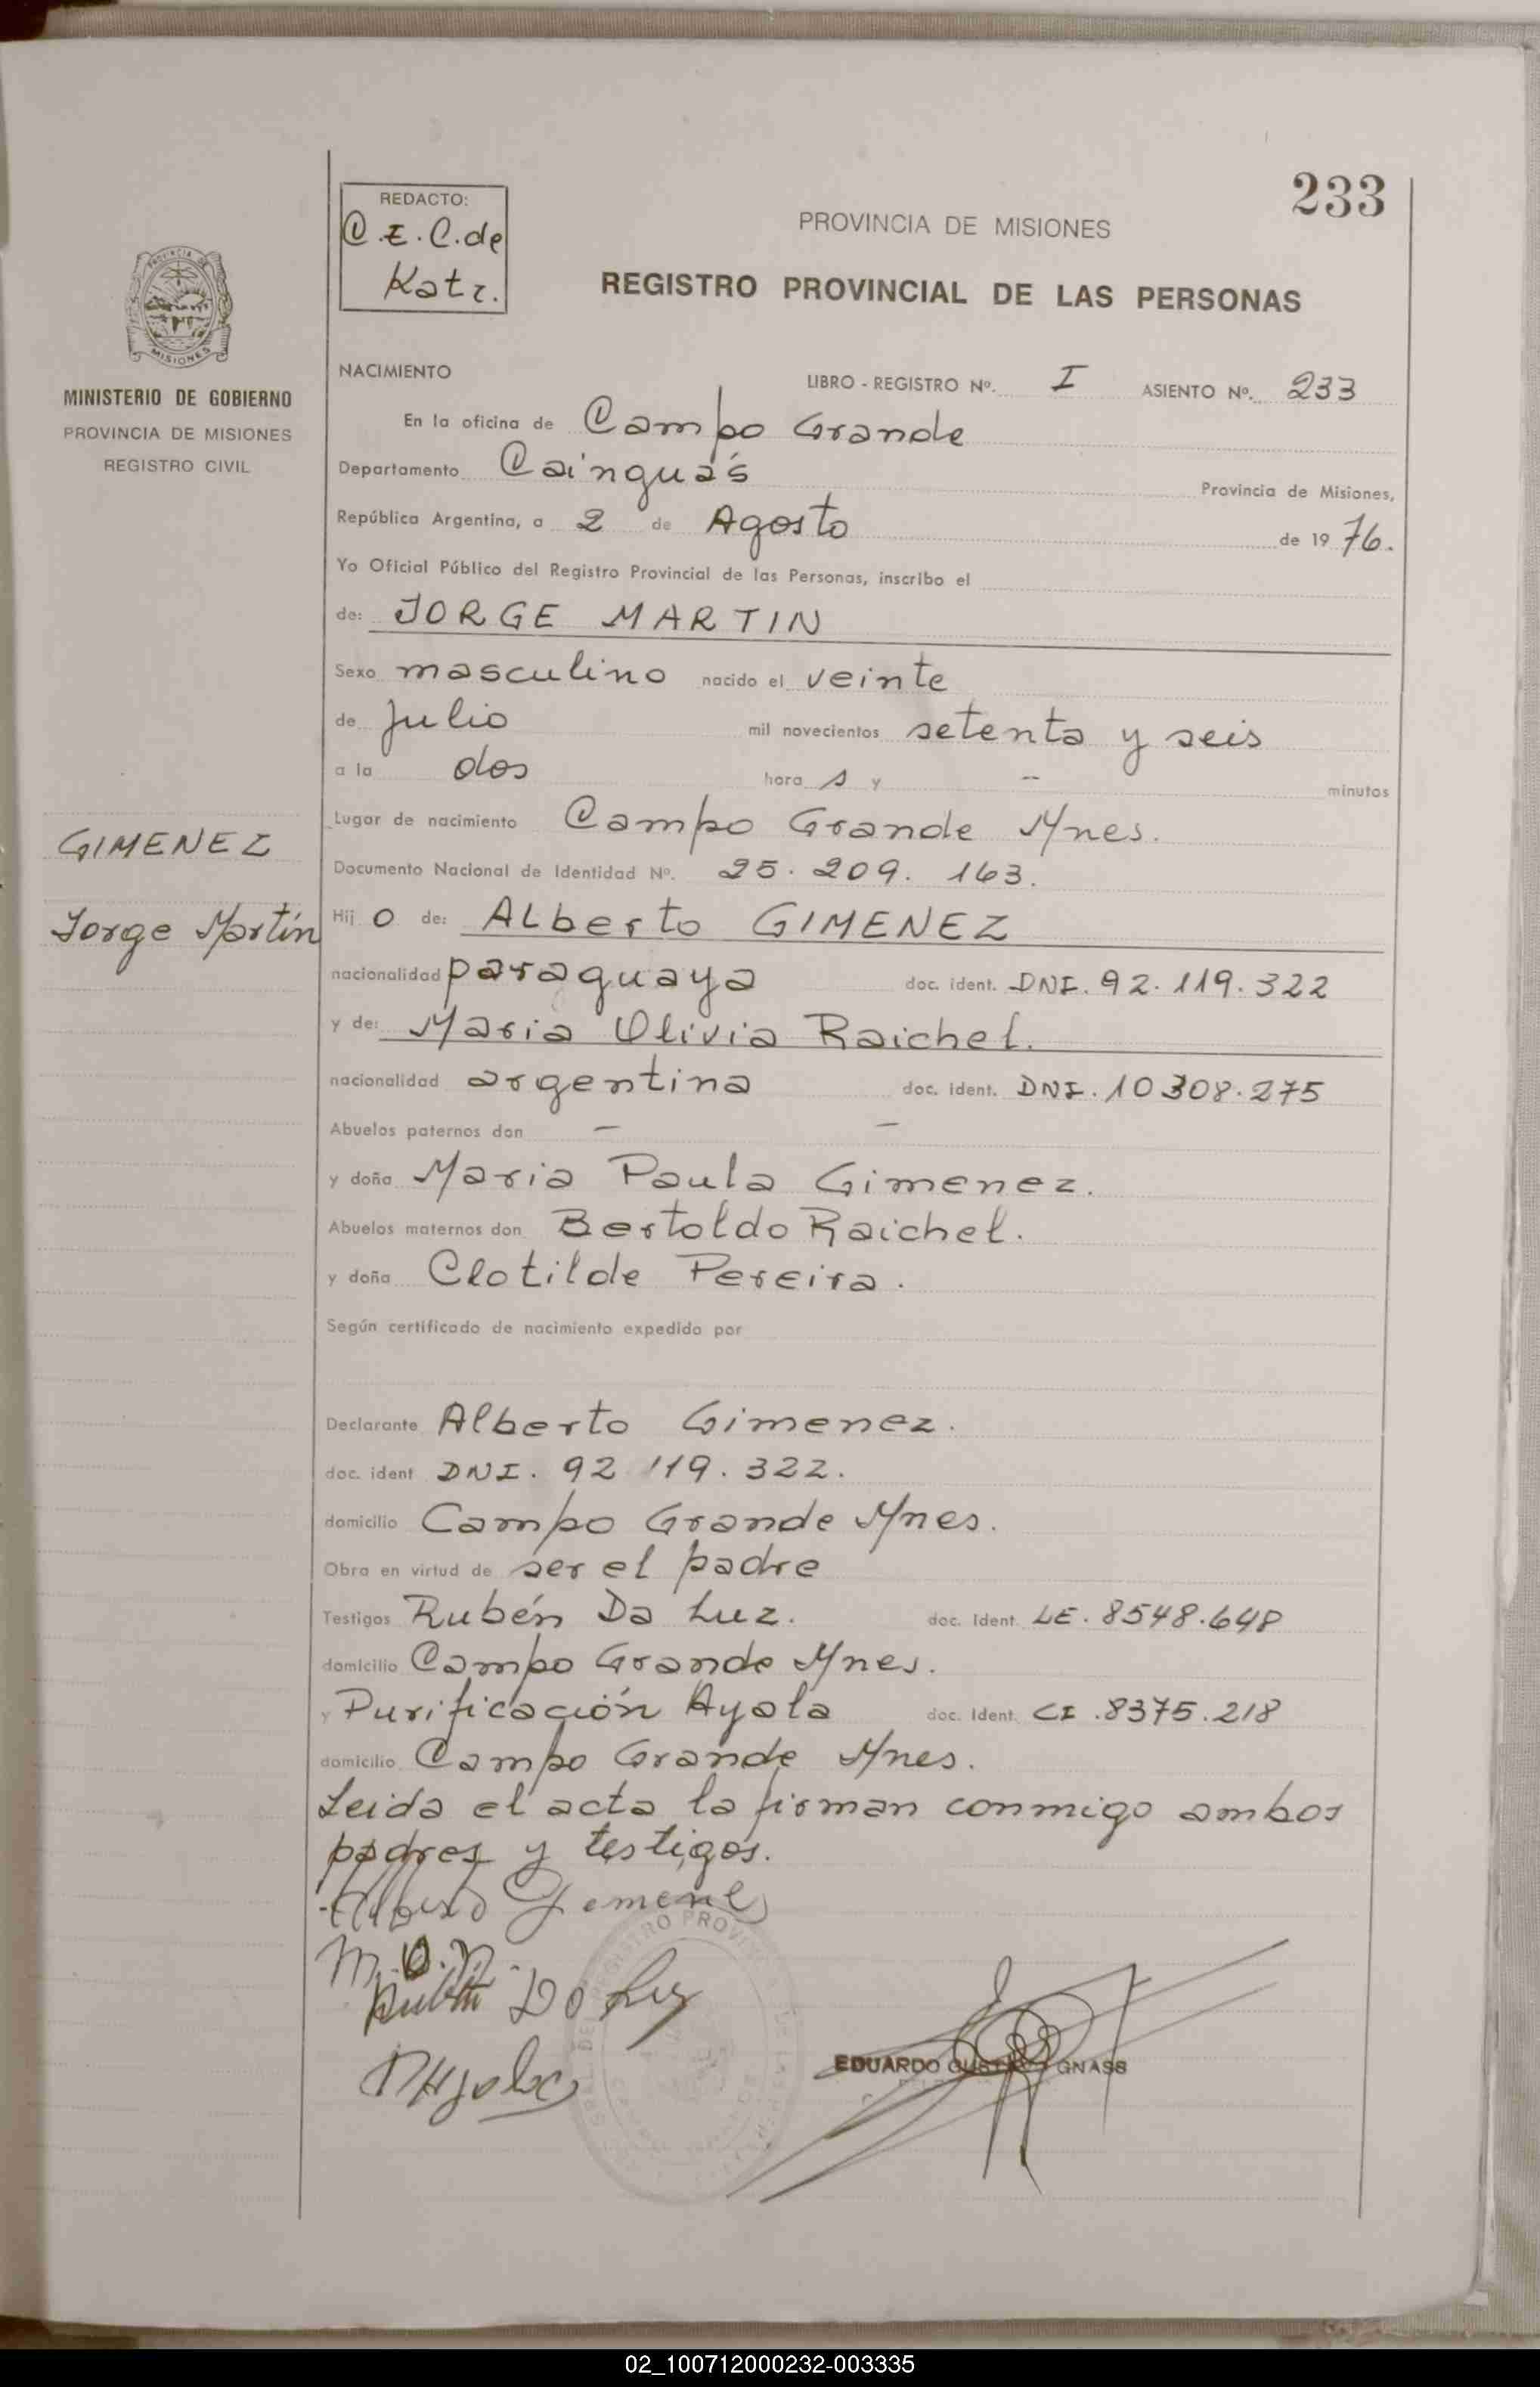 233
REDACTO:
C.E.C. de
Katz.
PROVINCIA DE MISIONES
REGISTRO PROVINCIAL DE LAS PERSONAS
PROVINCIA DE
MISIONES
MINISTERIO DE GOBIERNO
PROVINCIA DE MISIONES
REGISTRO CIVIL
NACIMIENTO
LIBRO - REGISTRO Nº. I ASIENTO Nº. 233
En la oficina de Campo Grande
Departamento Cainguás Provincia de Misiones,
República Argentina, a 2 de Agosto de 19 76.
Yo Oficial Público del Registro Provincial de las Personas, inscribo el
de: JORGE MARTIN
Sexo masculino nacido el veinte
de Julio mil novecientos setenta y seis
a la dos hora s y -- minutos
Lugar de nacimiento Campo Grande Mnes.
GIMENEZ
Documento Nacional de Identidad Nº. 25.209.163.
Jorge Martín
Hij o de: Alberto GIMENEZ
nacionalidad paraguaya doc. ident. DNI. 92.119.322
y de: Maria Olivia Raichel.
nacionalidad argentina doc. ident. DNI. 10308.275
Abuelos paternos don — —
y doña Maria Paula Gimenez.
Abuelos maternos don Bertoldo Raichel.
y doña Clotilde Pereira.
Según certificado de nacimiento expedido por
Declarante Alberto Gimenez.
doc. ident DNI. 92 119.322.
domicilio Campo Grande Mnes.
Obra en virtud de ser el padre
Testigos Rubén Da Luz. doc. Ident. LE. 8548.648
domicilio Campo Grande Mnes.
y Purificación Ayala doc. Ident. CI. 8375.218
domicilio Campo Grande Mnes.
Leida el acta la firman conmigo ambos
padres y testigos.
M.O.R.
Ruben Da Luz
PAyala
EDUARDO GNASS
02_100712000232-003335